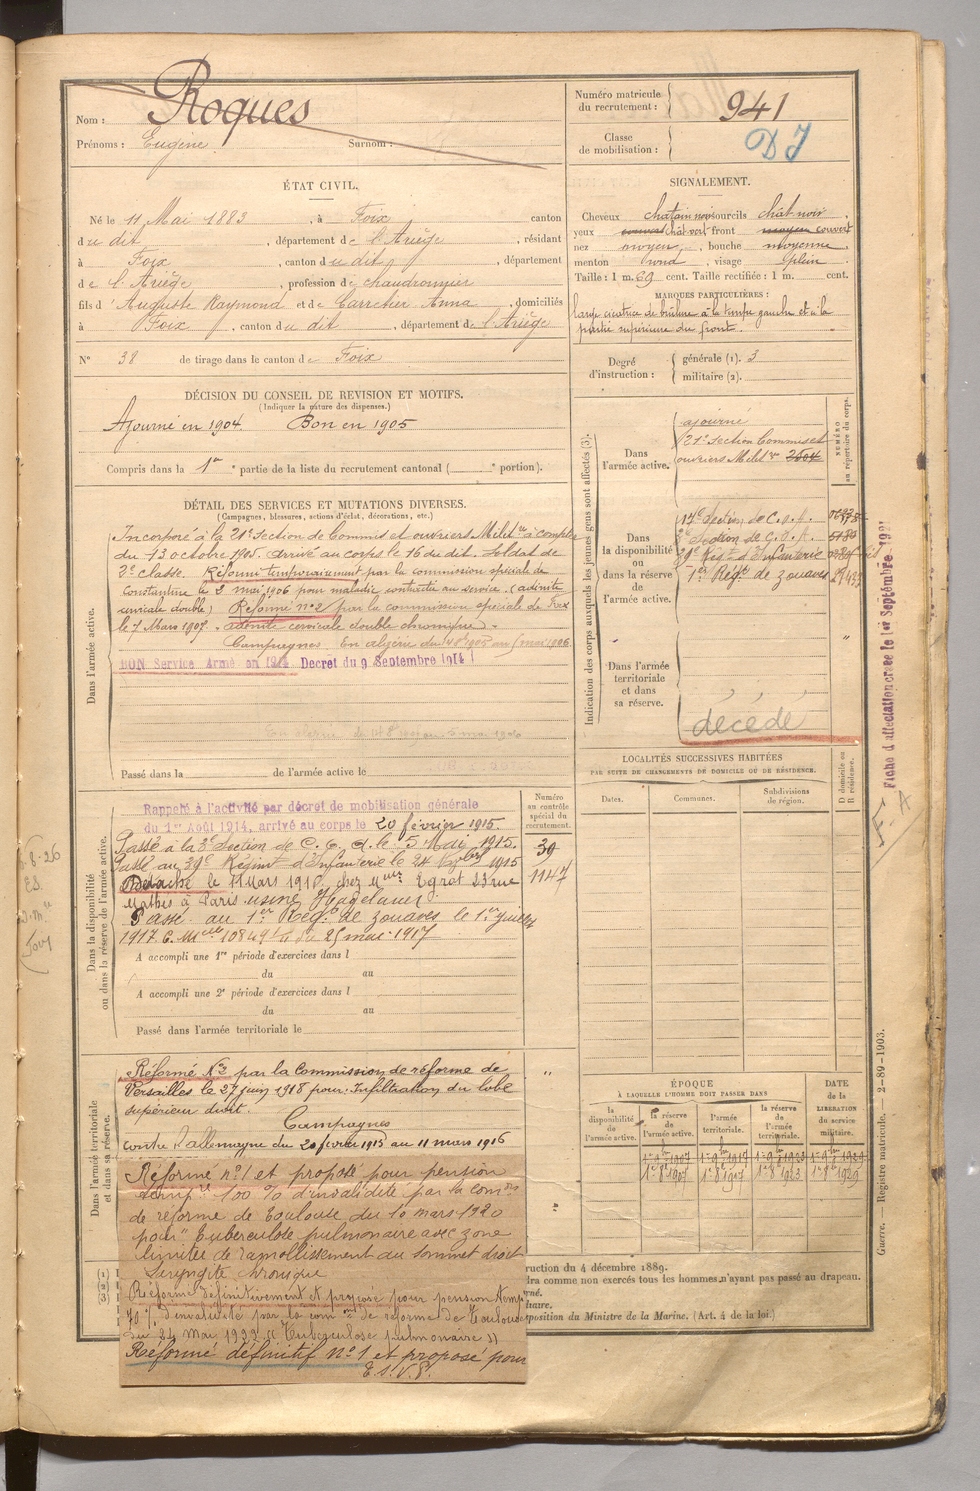 Nom : Roques
Prénoms : Eugène Surnom :
Numéro matricule
du recrutement : 941
Classe
de mobilisation : DJ
ÉTAT CIVIL.
Né le 11 Mai 1883, à Foix canton
du dit, département de l'Ariège, résidant
à Foix, canton du dit, département
de l'Ariège, profession de chaudronnier
fils d'Auguste Raymond et de Carretier Anna, domiciliés
à Foix, canton du dit, département de l'Ariège
N° 38 de tirage dans le canton de Foix
SIGNALEMENT.
Cheveux chatain noir sourcils chât noir
yeux chât vert front moyen couvert
nez moyen, bouche moyenne
menton rond, visage plein
Taille : 1 m. 69 cent. Taille rectifiée : 1 m. cent.
MARQUES PARTICULIÈRES :
large cicatrice de brûlure à la tempe gauche et à la
partie supérieure du front.
Degré
d'instruction :
générale (1). 3
militaire (2).
DÉCISION DU CONSEIL DE REVISION ET MOTIFS.
(Indiquer la nature des dispenses.)
Ajourné en 1904. Bon en 1905
Compris dans la 1re partie de la liste du recrutement cantonal ( portion).
DÉTAIL DES SERVICES ET MUTATIONS DIVERSES.
(Campagnes, blessures, actions d'éclat, décorations, etc.)
Dans l'armée active.
Incorporé à la 21e Section de Commis et ouvriers Milit res à compter
du 13 octobre 1905. Arrivé au corps le 16 du dit. Soldat de
2e classe. Réformé temporairement par la commission spéciale de
Constantine le 2 mai 1906 pour maladie contractée au service. (adénite
cervicale double) Réformé n° 2 par la commission spéciale de Foix
le 7 Mars 1907. adénite cervicale double chronique).
Campagnes : En algérie du 1905 au 5 mai 1906
BON Service Armé en 1914 Decret du 9 Septembre 1914
Passé dans la de l'armée active le
Indication des corps auxquels les jeunes gens sont affectés (3).
NUMÉRO
au répertoire du corps.
Dans
l'armée active.
ajourné
21e Section Commis et
ouvriers Milit res 2604
Dans
la disponibilité
ou
dans la réserve
de
l'armée active.
17e Section de C.O.A.
3e Section de C.O.A.
39e Régt d'Infanterie
1er Régt de zouaves
Dans l'armée
territoriale
et dans
sa réserve.
décédé
Fiche d'affectation créée le 1er Septembre 1921
F. A
LOCALITÉS SUCCESSIVES HABITÉES
PAR SUITE DE CHANGEMENTS DE DOMICILE OU DE RÉSIDENCE.
Dates.
Communes.
Subdivisions
de région.
D domicile ou
R résidence.
Dans la disponibilité
ou dans la réserve de l'armée active.
Numéro
au contrôle
spécial du
recrutement.
Rappelé à l'activité par décret de mobilisation générale
du 1er Août 1914, arrivé au corps le 20 février 1915.
Passé à la 3e Section de C.O.A. le 5 Mai 1915. 39
Passé au 39e Régiment d'Infanterie le 24 1915
Détaché le 11 Mars 1916 chez Egrot 23 rue 1147
Mathis à Paris usine
Passé au 1er Régt de zouaves le 1er Juillet
1917. C. Mlle 10849 du 25 mai 1917
A accompli une 1re période d'exercices dans l
du au
A accompli une 2e période d'exercices dans l
du au
Passé dans l'armée territoriale le
Dans l'armée territoriale
et dans sa réserve.
Réformé N°2 par la Commission de réforme de
Versailles le 27 juin 1918 pour Infiltration du lobe
supérieur droit.
Campagnes
contre l'allemagne du 20 février 1915 au 11 mars 1916
Réformé n°1 et proposé pour pension
temp re 100 % d'invalidité par la com on
de réforme de Toulouse du 10 mars 1920
pour "Tuberculose pulmonaire avec zone
limitée de ramollissement du sommet droit
Laryngite chronique
Réformé définitivement et proposé pour pension temp
70 % d'invalidité par la com on de réforme de Toulouse
du 24 mai 1922 (Tuberculose pulmonaire))
Réformé définitif n° 1 et proposé pour
T.S.V.P.
ÉPOQUE
À LAQUELLE L'HOMME DOIT PASSER DANS
la
disponibilité
de
l'armée active.
la réserve
de
l'armée active.
l'armée
territoriale.
la réserve
de
l'armée
territoriale.
DATE
de la
LIBÉRATION
du service
militaire.
(1)
(2)
(3)
ruction du 4 décembre 1889.
dra comme non exercés tous les hommes n'ayant pas passé au drapeau.
rné.
itaire.
sposition du Ministre de la Marine. (Art. 4 de la loi.)
Guerre. — Registre matricule. — 2-89-1903.